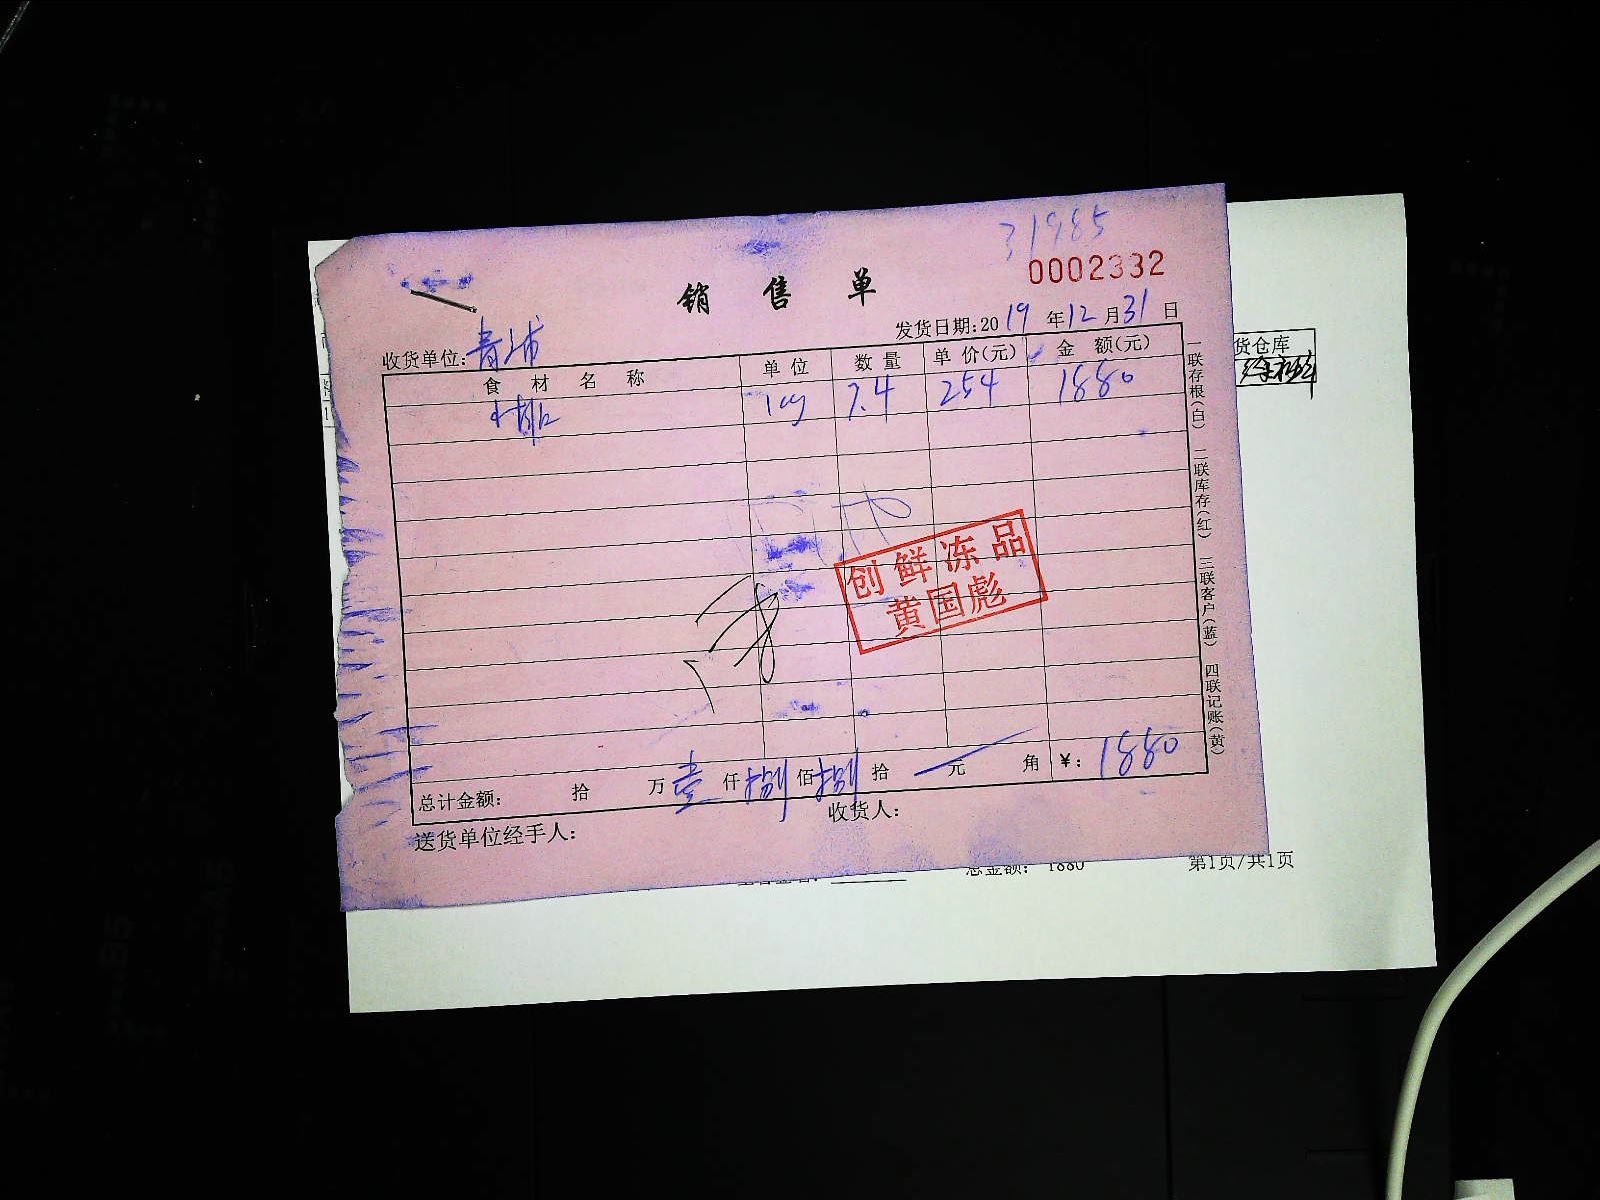 31985
0002332
销售单
发货日期:2019年12月31日
收货单位:青浦
食材名称 单位 数量 单价(元) 金额(元)
小排 kg 7.4 254 1880
创鲜冻品
黄国彪
总计金额: 拾 万壹仟捌佰捌拾 元 角 ¥:1880
送货单位经手人: 收货人:
一联存根(白) 二联库存(红) 三联客户(蓝) 四联记账(黄)
货仓库
总金额: 1880 第1页/共1页